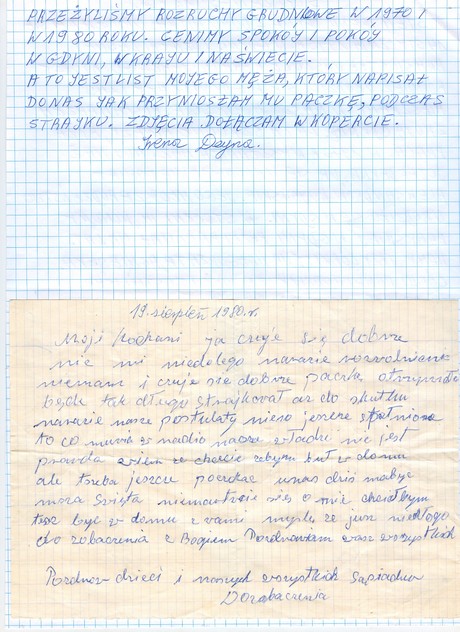 PRZEŻYLIŚMY ROZRUCHY GRUDNIOWE W 1970 I
W 1980 ROKU. CENIMY SPOKÓJ I POKÓJ
W GDYNI, W KRAJU I NA ŚWIECIE.
A TO JEST LIST MOJEGO MĘŻA, KTÓRY NAPISAŁ
DO NAS JAK PRZYNIOSŁAM MU PACZKĘ, PODCZAS
STRAJKU. ZDJĘCIA DOŁĄCZAM W KOPERCIE.
Irena
19. sierpień 1980.r.
Moji kochani ja czuje się dobrze
nic mi niedolega narazie
niemam i czuje sie dobrze paczkę
będe tak długo strajkował aż do skutku
narazie nasze postulaty niesą jeszcze spełnione
to co w radio nasze władze nie jest
prawda wiem ze chcecie żebym był w domu
ale trzeba jeszcze poczekac unas dziś
msza Święta niemartwcie się o mie
tesz być w domu z wami mysle ze jusz niedługo
do zobaczenia z Bogiem Pozdrawiam was wszystkich
Pozdrow dzieci i naszych wszystkich
Dozobaczenia